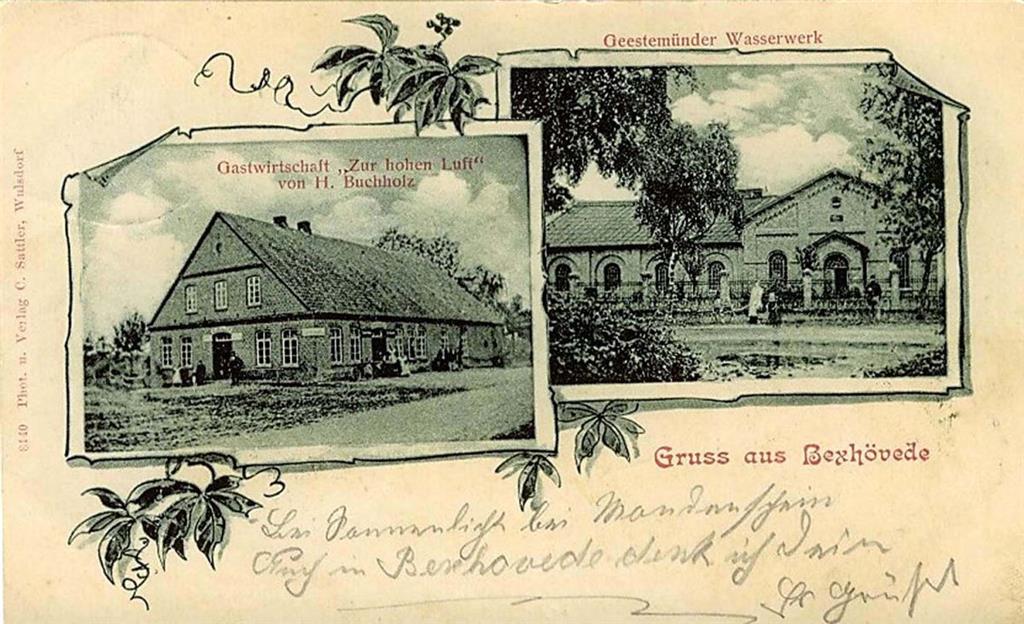 Geestemünder Wasserwerk
Gastwirtschaft „Zur hohen Luft“
von H. Buchholz
Phot. u. Verlag C. Sattler, Wulsdorf
Gruss aus Bexhövede
Bei Sonnenlicht bei Mondenschein
Auch in Bexhovede denk ich Dein
Es grüßt